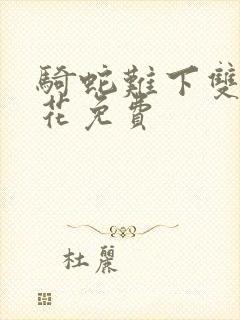 騎蛇難下雙
花免費
杜麗